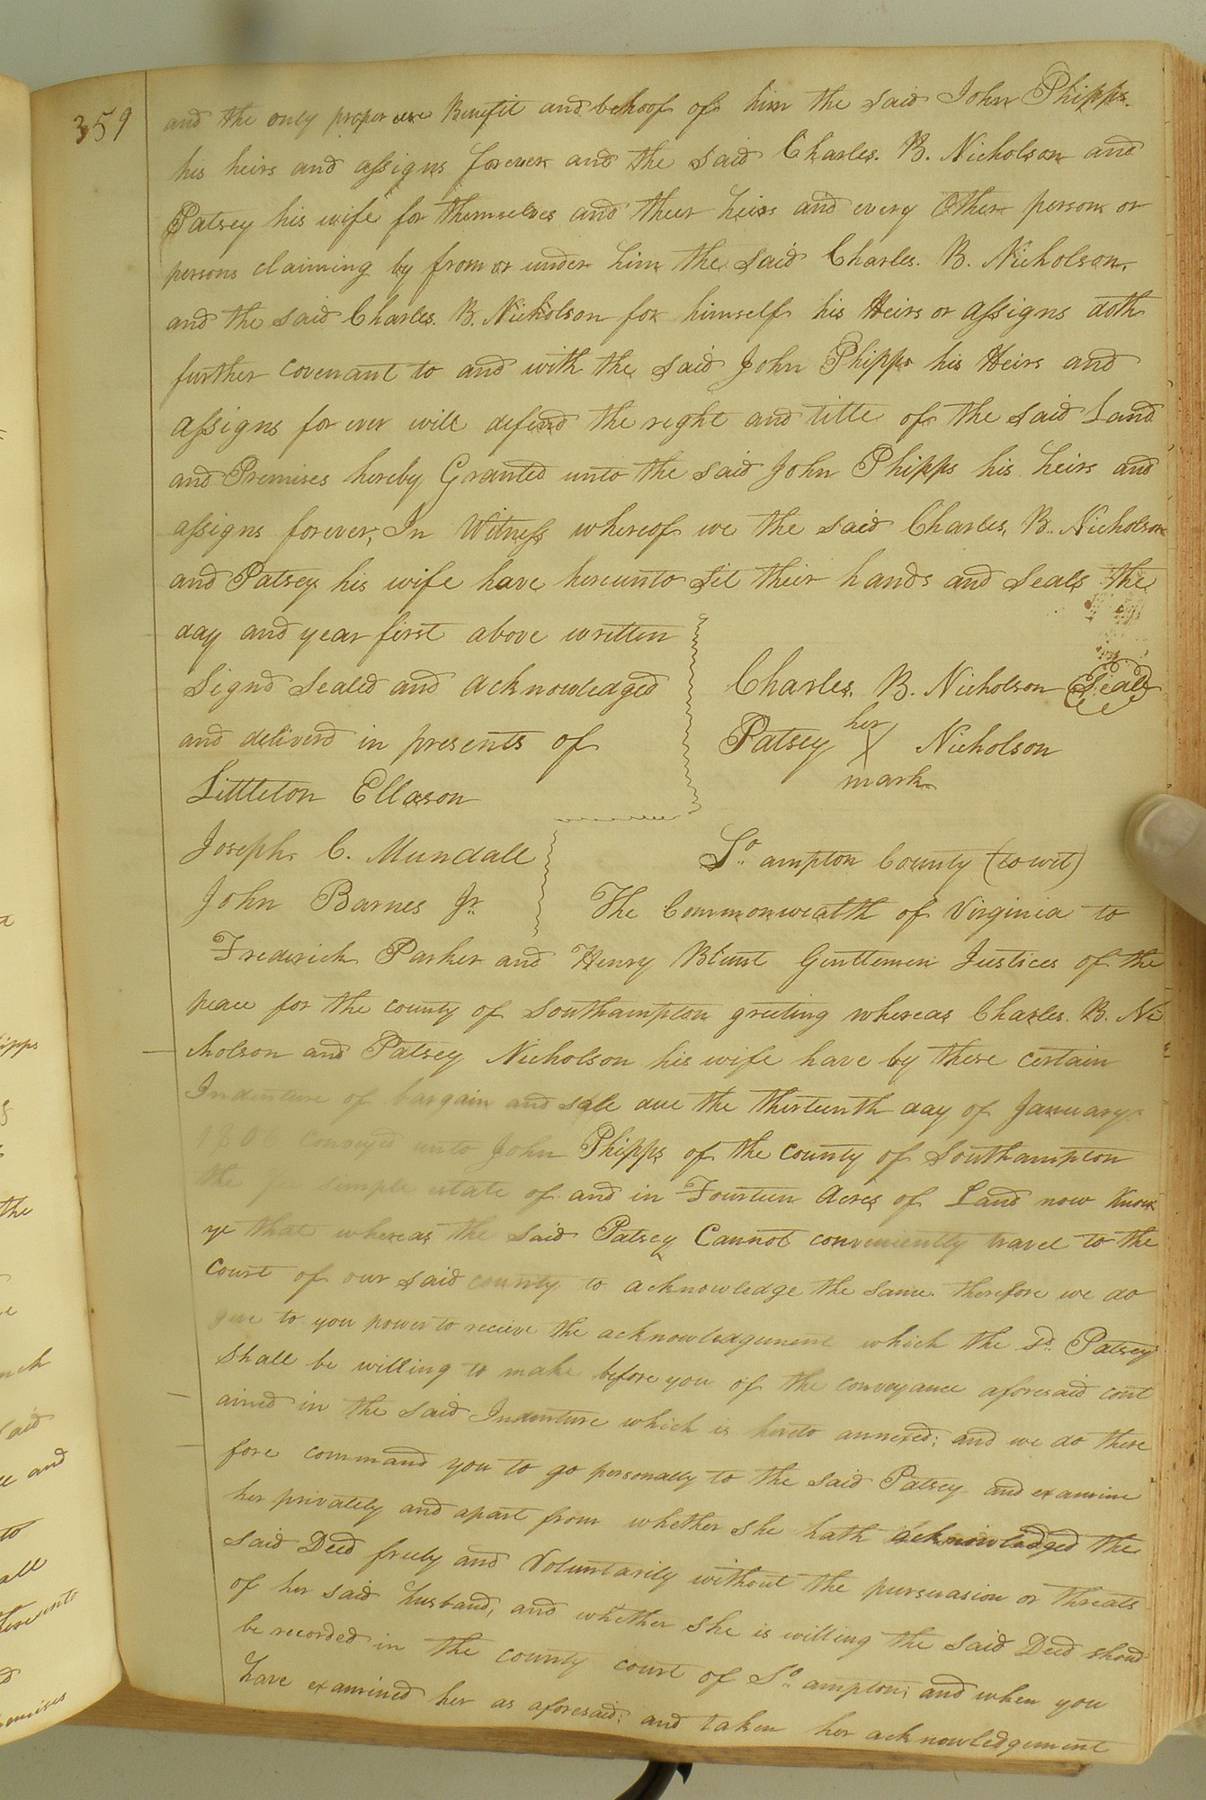 359
and the only proper use Benefit and behoof of him the said John Phipps
his heirs and assigns forever and the said Charles. B. Nicholson and
Patsey his wife for themselves and their heirs and every Other person or
persons claiming by from or under him the said Charles. B. Nicholson,
and the said Charles. B. Nicholson for himself his Heirs or assigns doth
further covenant to and with the said John Phipps his Heirs and
assigns for ever will defend the right and title of the said Land
and Premises hereby Granted unto the said John Phipps his heirs and
assigns forever, In Witness whereof we the said Charles, B. Nicholson
and Patsey his wife have hereunto Set their hands and Seals the
day and year first above written
Signd Sealed and acknowledged
and deliverd in presents of
Littleton Ellason
Joseph C. Mundall
John Barnes Jr.
Charles. B. Nicholson Seal
Patsey her X mark Nicholson
So. ampton County (to wit)
The Commonwealth of Virginia to
Frederick Parker and Henry Blunt Gentlemen Justices of the
peace for the county of Southampton greeting whereas Charles. B. Ni
cholson and Patsey Nicholson his wife have by these certain
Indenture of bargain and sale due the thirteenth day of January
1806 conveyed unto John Phipps of the county of Southampton
the fee simple estate of and in Fourteen Acres of Land now Know
ye that whereas the said Patsey Cannot conveniently travel to the
Court of our said county to acknowledge the same therefore we do
give to you power to recieve the acknowledgement which the sd. Patsey
Shall be willing to make before you of the conveyance aforesaid cont
ained in the said Indenture which is hereto annexed; and we do there
fore command you to go personally to the said Patsey and examine
her privately and apart from whether she hath acknowledged the
said Deed freely and Voluntarily without the persuasion or threats
of her said husband, and whether she is willing the said Deed shoud
be recorded in the county court of So. ampton; and when you
have examined her as aforesaid; and taken her acknowledgement